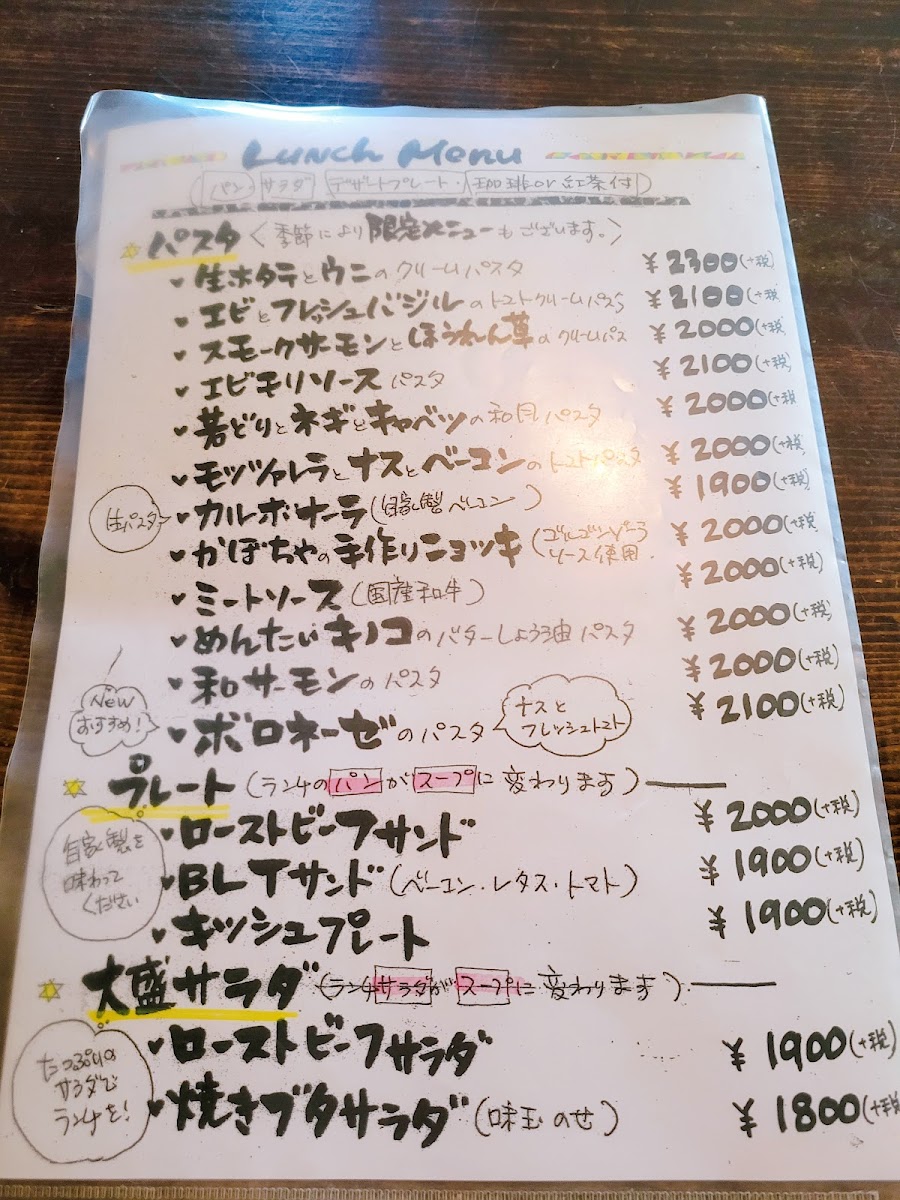 Lunch Menu
(パン サラダ デザートプレート・珈琲or紅茶付)
パスタ〈季節により限定メニューもございます。〉
生ホタテとウニのクリームパスタ ¥2300(+税)
エビとフレッシュバジルのトマトクリームパスタ ¥2100(+税
スモークサーモンとほうれん草のクリームパス ¥2000(+税
エビモリソースパスタ ¥2100(+税)
若どりとネギとキャベツの和風パスタ ¥2000(+税
モッツァレラとナスとベーコンのトマトパスタ ¥2000(+税)
生パスタ カルボナーラ(自家製ベーコン) ¥1900(+税)
かぼちゃの手作りニョッキ(ゴルゴンゾーラソース使用. ¥2000(+税)
ミートソース(国産和牛) ¥2000(+税)
めんたいキノコのバターしょう油パスタ ¥2000(+税)
和サーモンのパスタ ¥2000(+税)
Newおすすめ! ボロネーゼのパスタ ナスとフレッシュトマト ¥2100(+税)
プレート(ランチのパンがスープに変わります)
自家製を味わってください
ローストビーフサンド ¥2000(+税)
BLTサンド(ベーコン・レタス・トマト) ¥1900(+税)
キッシュプレート ¥1900(+税)
大盛サラダ(ランチサラダがスープに変わります)
たっぷりのサラダでランチを!
ローストビーフサラダ ¥1900(+税)
焼きブタサラダ(味玉のせ) ¥1800(+税